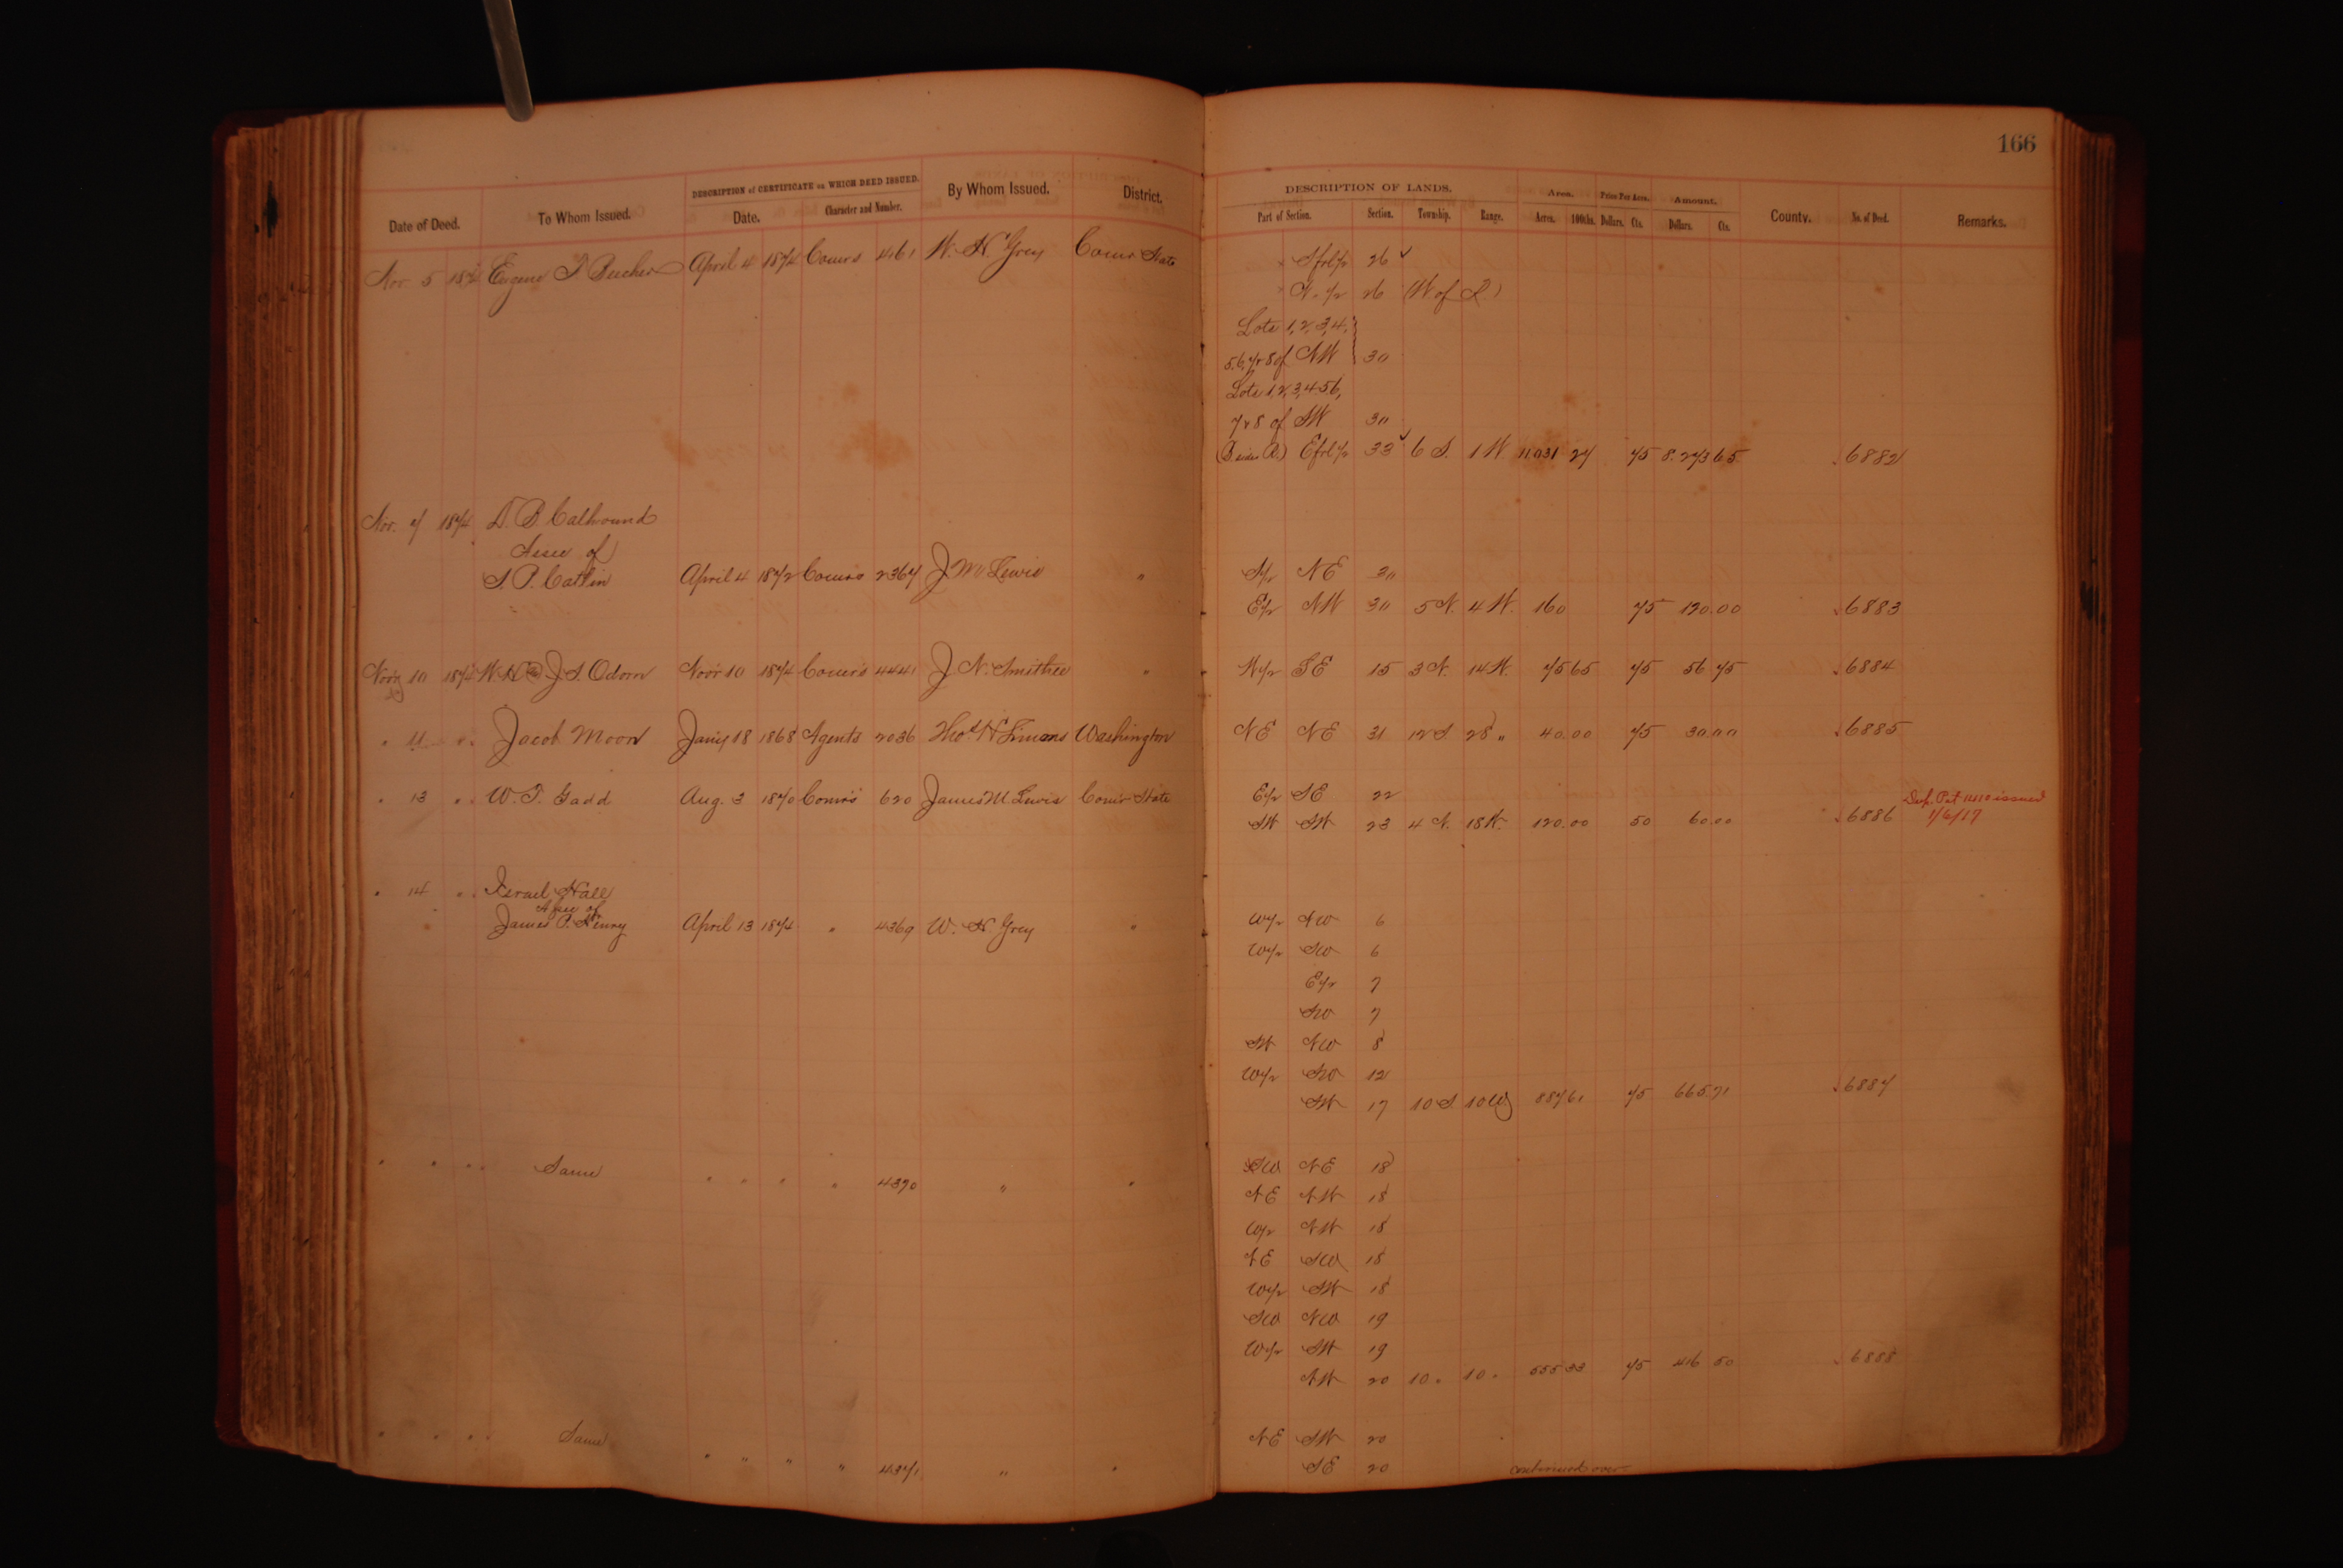 166
DESCRIPTION of CERTIFICATE on WHICH DEED ISSUED. By Whom Issued. District. DESCRIPTION OF LANDS. Area. Price Per Acre. Amount.
Date of Deed. To Whom Issued. Date. Character and Number. Part of Section. Section. Township. Range. Acres. 100ths. Dollars. Cts. Dollars. Cts. County. No. of Deed. Remarks.
Nov. 5 1874 Eugene Beecher April 4 1874 Comrs 4161 W. H. Grey Comr State Sfrl½ 26 ✓
N. ½ 26 (W of R)
Lots 1, 2, 3, 4,
5, 6, 7 & 8 of NW 30
Lots 1, 2, 3, 4 5 6,
7 & 8 of SW 30
Efrl½ 33 ✓ 6 S. 1 W 11.031 27 75 8.273 65 6882
Nov. 7 1874 D. B. Calhound
Assee of
S. P. Catlin April 4 1872 Comrs 2367 J. M. Lewis " S½ NE 30
E½ NW 30 5 N. 4 W. 160 75 120.00 6883
Nov 10 1874 W. H. & J. S. Odom Nov 10 1874 Comrs 4441 J. N. Smithee " W½ SE 15 3 N. 14 W. 75 65 75 56 75 6884
" 11 " " Jacob Moon Jany 18 1868 Agents 2036 Tho. H Simons Washington NE NE 31 12 S 28 " 40.00 75 30.00 6885
" 13 " " W. T. Gadd Aug. 3 1870 Comrs 620 James M. Lewis Comr State E½ SE 22
SW SW 23 4 N. 18 W. 120.00 50 60.00 6886 Dup. Pat issued
1/6/17
" 14 " " Israel Hall
Assee of
James P. Henry April 13 1874 " 4369 W. H. Grey " W½ NW 6
W½ SW 6
E½ 7
SW 7
SW NW 8
W½ SW 12
SW 17 10 S. 10 W 887 61 75 665.71 6887
" " " " Same " " " " 4370 " " SW NE 18
NE NW 18
W½ NW 18
NE SW 18
W½ SW 18
SW NW 19
W½ SW 19
NW 20 10 " 10 " 555 33 75 416 50 6888
" " " " Same " " " " 4371 " " NE SW 20
SE 20 continued over